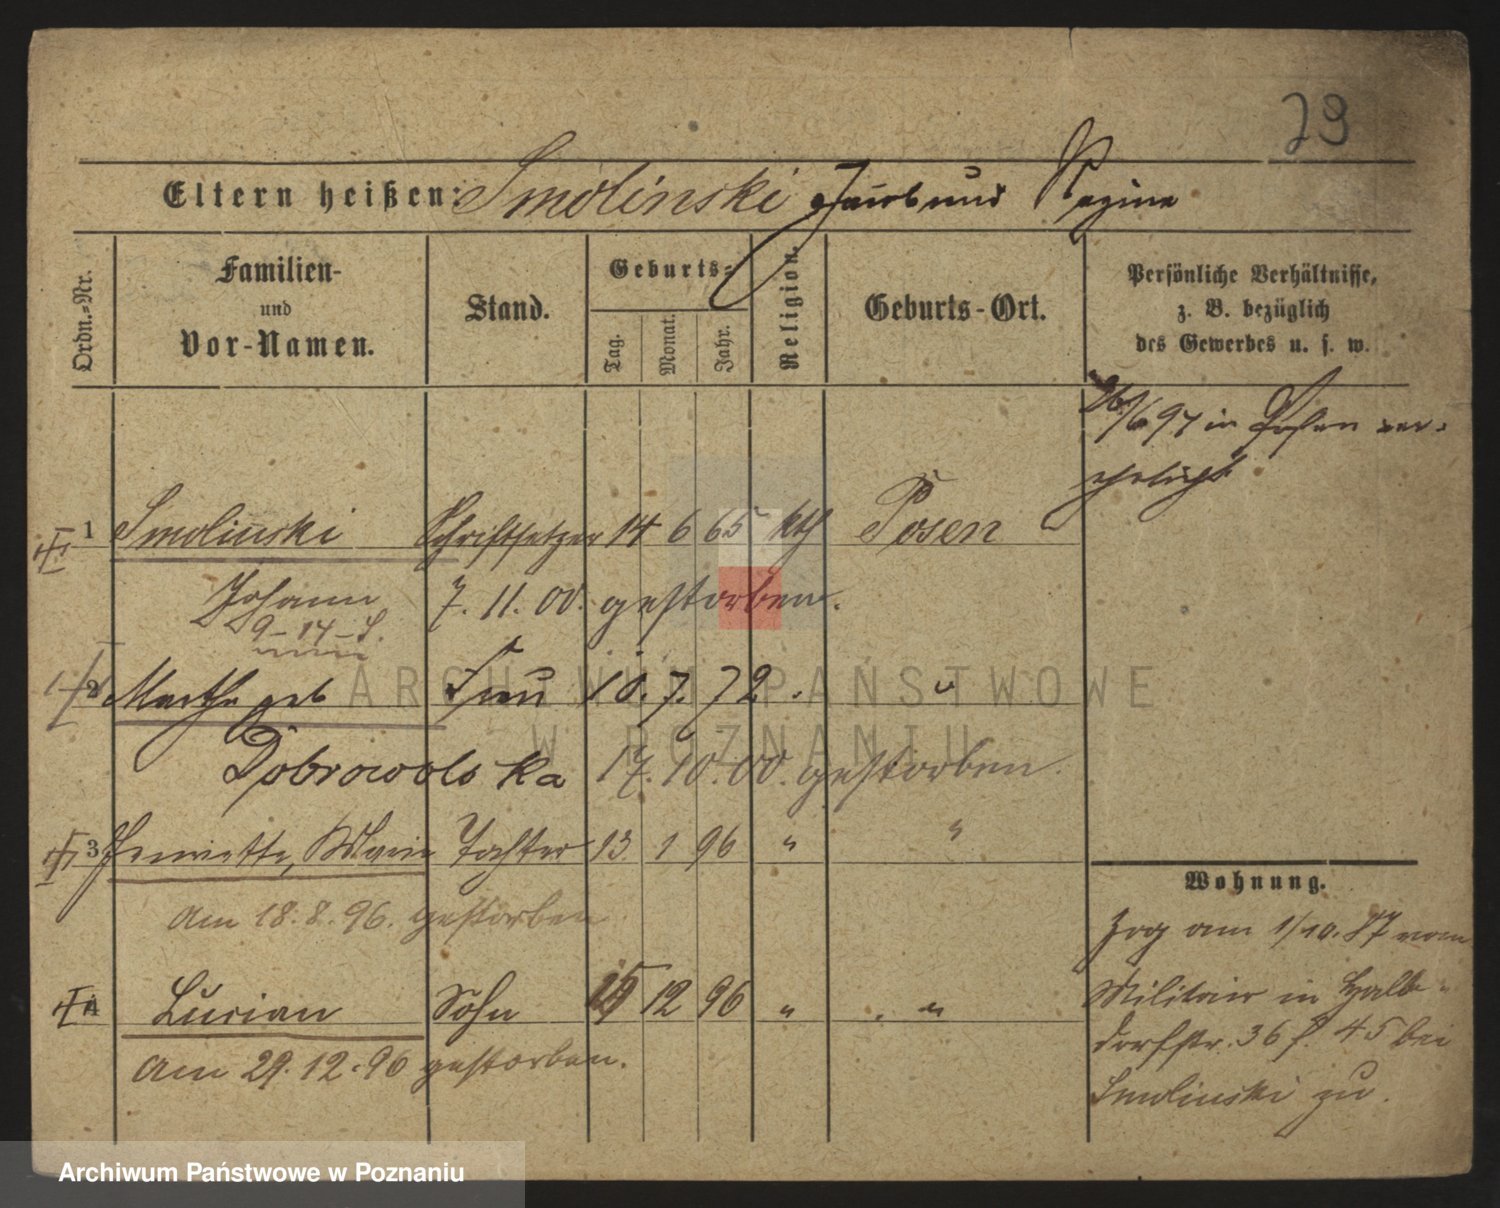 29
Eltern heißen: Smolinski Jacob und Regine
Ordn.-Nr.
Familien-
und
Vor-Namen.
Stand.
Geburts-
Tag.
Monat.
Jahr.
Religion.
Geburts-Ort.
Persönliche Verhältnisse,
z. B. bezüglich
des Gewerbes u. s. w.
26/6 97 in Posen ver-
ehelicht
1 Smolinski Schriftsetzer 14 6 65 kth Posen
Johann 7. 11. 00. gestorben.
9-14-
2 Martha geb Frau 10. 7. 72. "
Dobrowolska 17. 10. 00. gestorben.
3 Henriette, Marie Tochter 13 1 96 " "
Am 18. 8. 96. gestorben
4 Lucian Sohn 15 12 96 " "
Am 29. 12. 96 gestorben.
Wohnung.
Zog am 1/10. 87 vom
Militair in Halb-
dorfstr. 36 45 bei
Smolinski zu.
ARCHIWUM PAŃSTWOWE
W POZNANIU
Archiwum Państwowe w Poznaniu